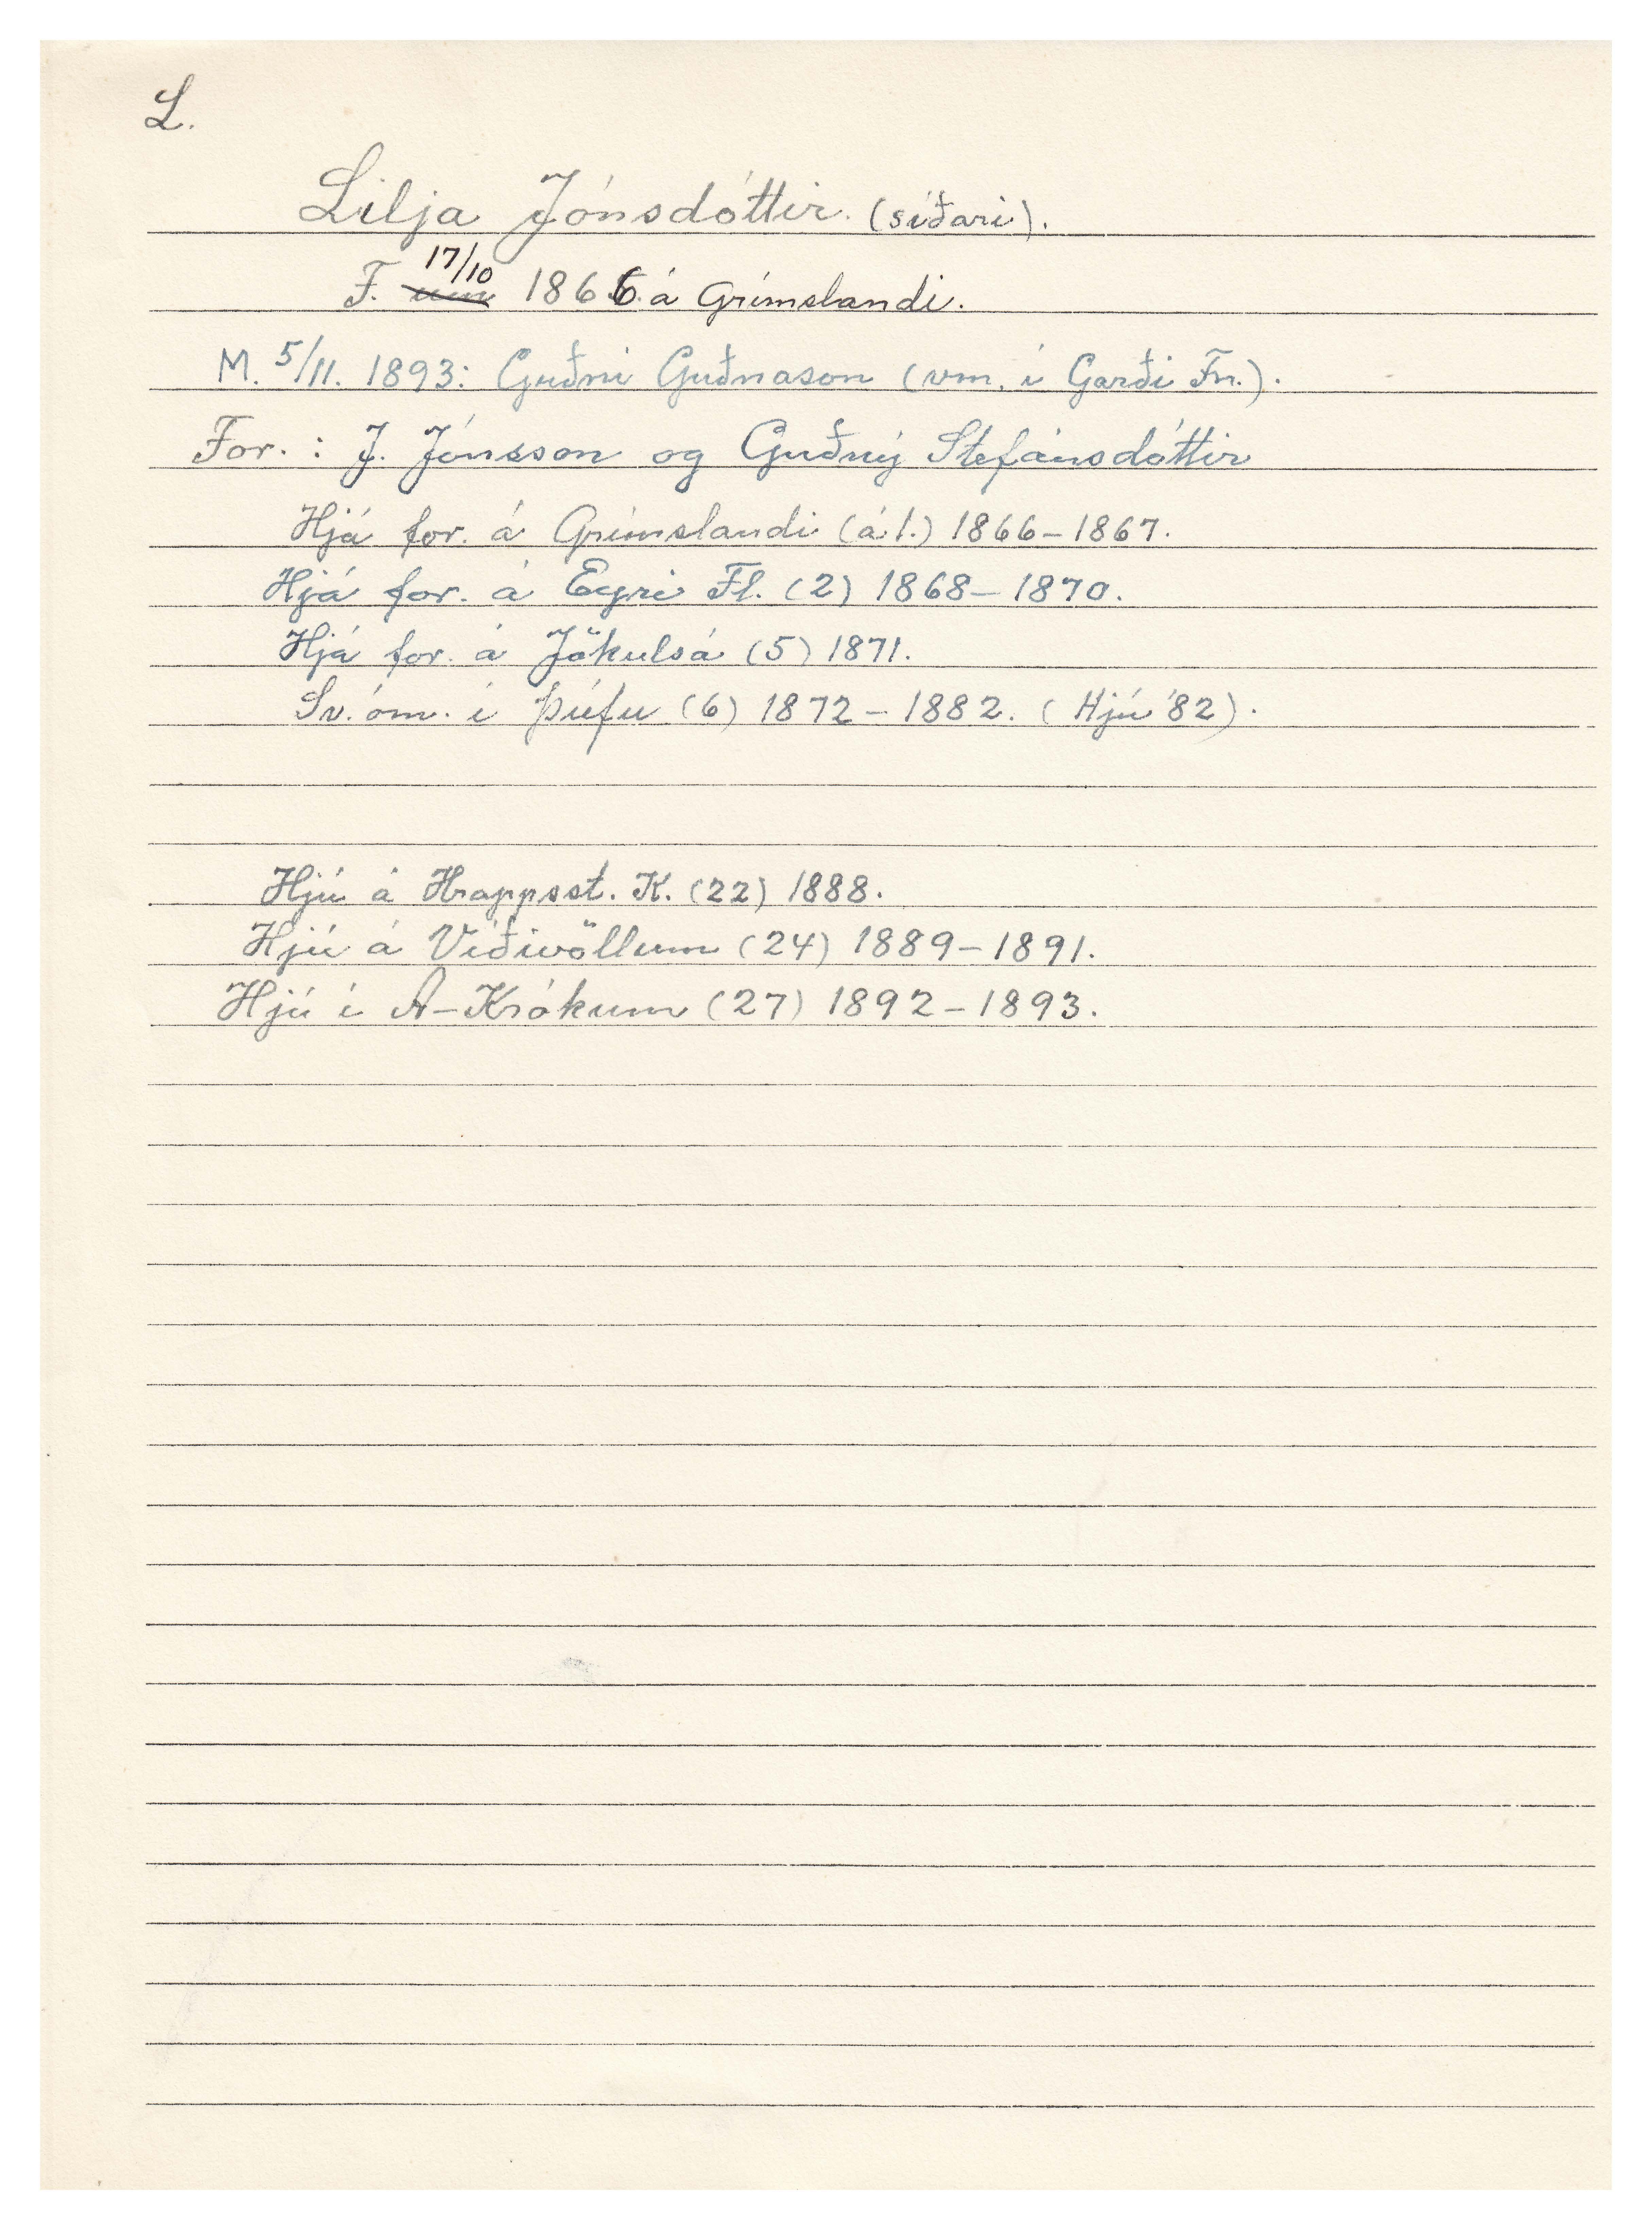 L.
Lilja Jónsdóttir. (síðari).
F. 17/10 1866 á Grímslandi.
M. 5/11. 1893: Guðni Guðnason (vm. í Garði Fn.).
For. : J. Jónsson og Guðný Stefánsdóttir
Hjá for. á Grímslandi (á 1.) 1866-1867.
Hjá for. á Eyri Fl. (2) 1868-1870.
Hjá for. á Jökulsá (5) 1871.
Sv. óm. í Þúfu (6) 1872-1882. (Hjú '82).
Hjú á Hrappsst. K. (22) 1888.
Hjú á Víðivöllum (24) 1889-1891.
Hjú í A-Krókum (27) 1892-1893.